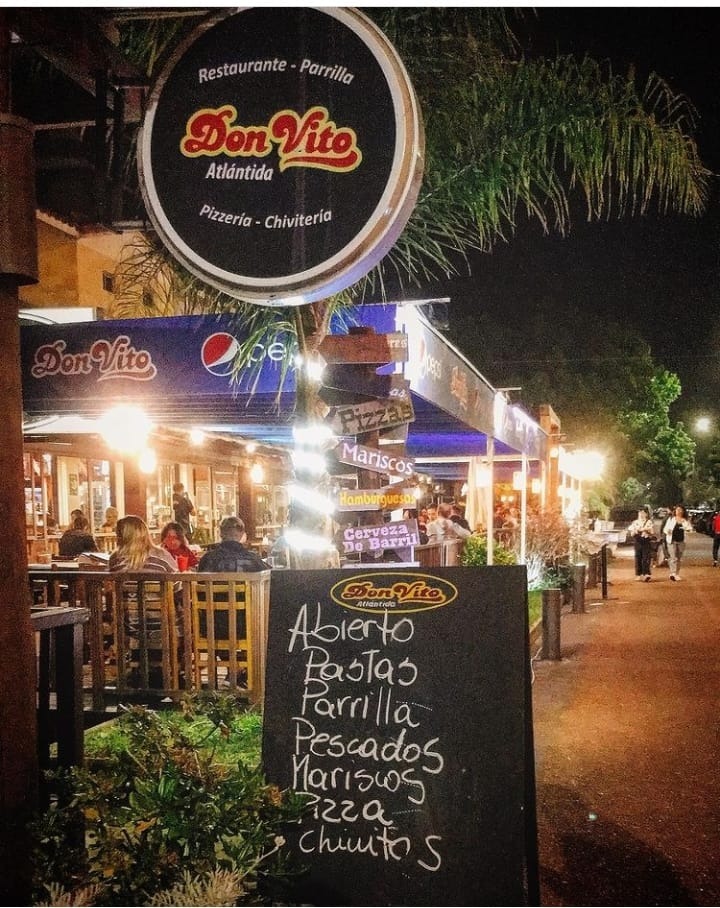 Restaurante - Parrilla
Don Vito
Atlántida
Pizzería - Chivitería
Don Vito
pepsi
Pizzas
Mariscos
Hamburguesas
Cerveza
De Barril
Don Vito
Atlántida
Abierto
Pastas
Parrilla
Pescados
Mariscos
Pizza
Chivitos